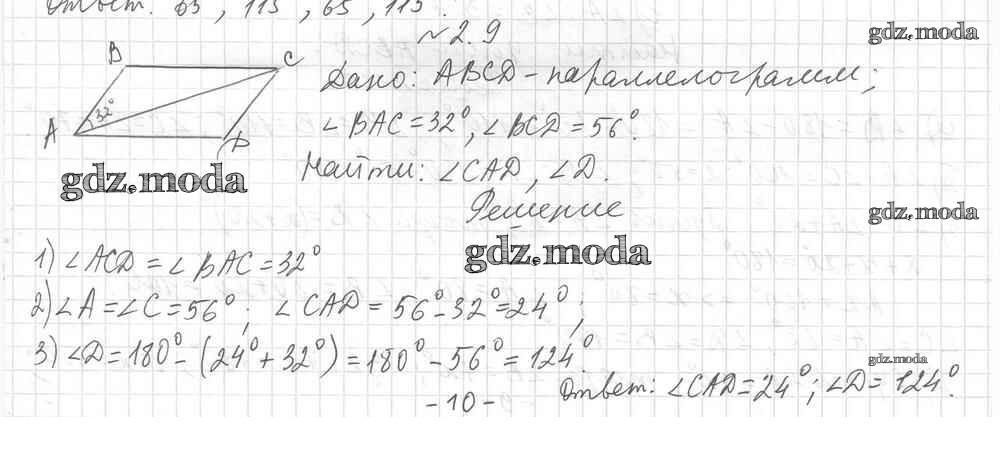 Ответ: 65°, 115°, 65°, 115°.
№ 2.9
gdz.moda
B
C
32°
A
D
Дано: ABCD - параллелограмм;
∠BAC = 32°, ∠BCD = 56°.
Найти: ∠CAD, ∠D.
gdz.moda
gdz.moda
Решение
gdz.moda
1) ∠ACD = ∠BAC = 32°
2) ∠A = ∠C = 56°; ∠CAD = 56° - 32° = 24°;
3) ∠D = 180° - (24° + 32°) = 180° - 56° = 124°.
gdz.moda
Ответ: ∠CAD = 24°; ∠D = 124°.
- 10 -